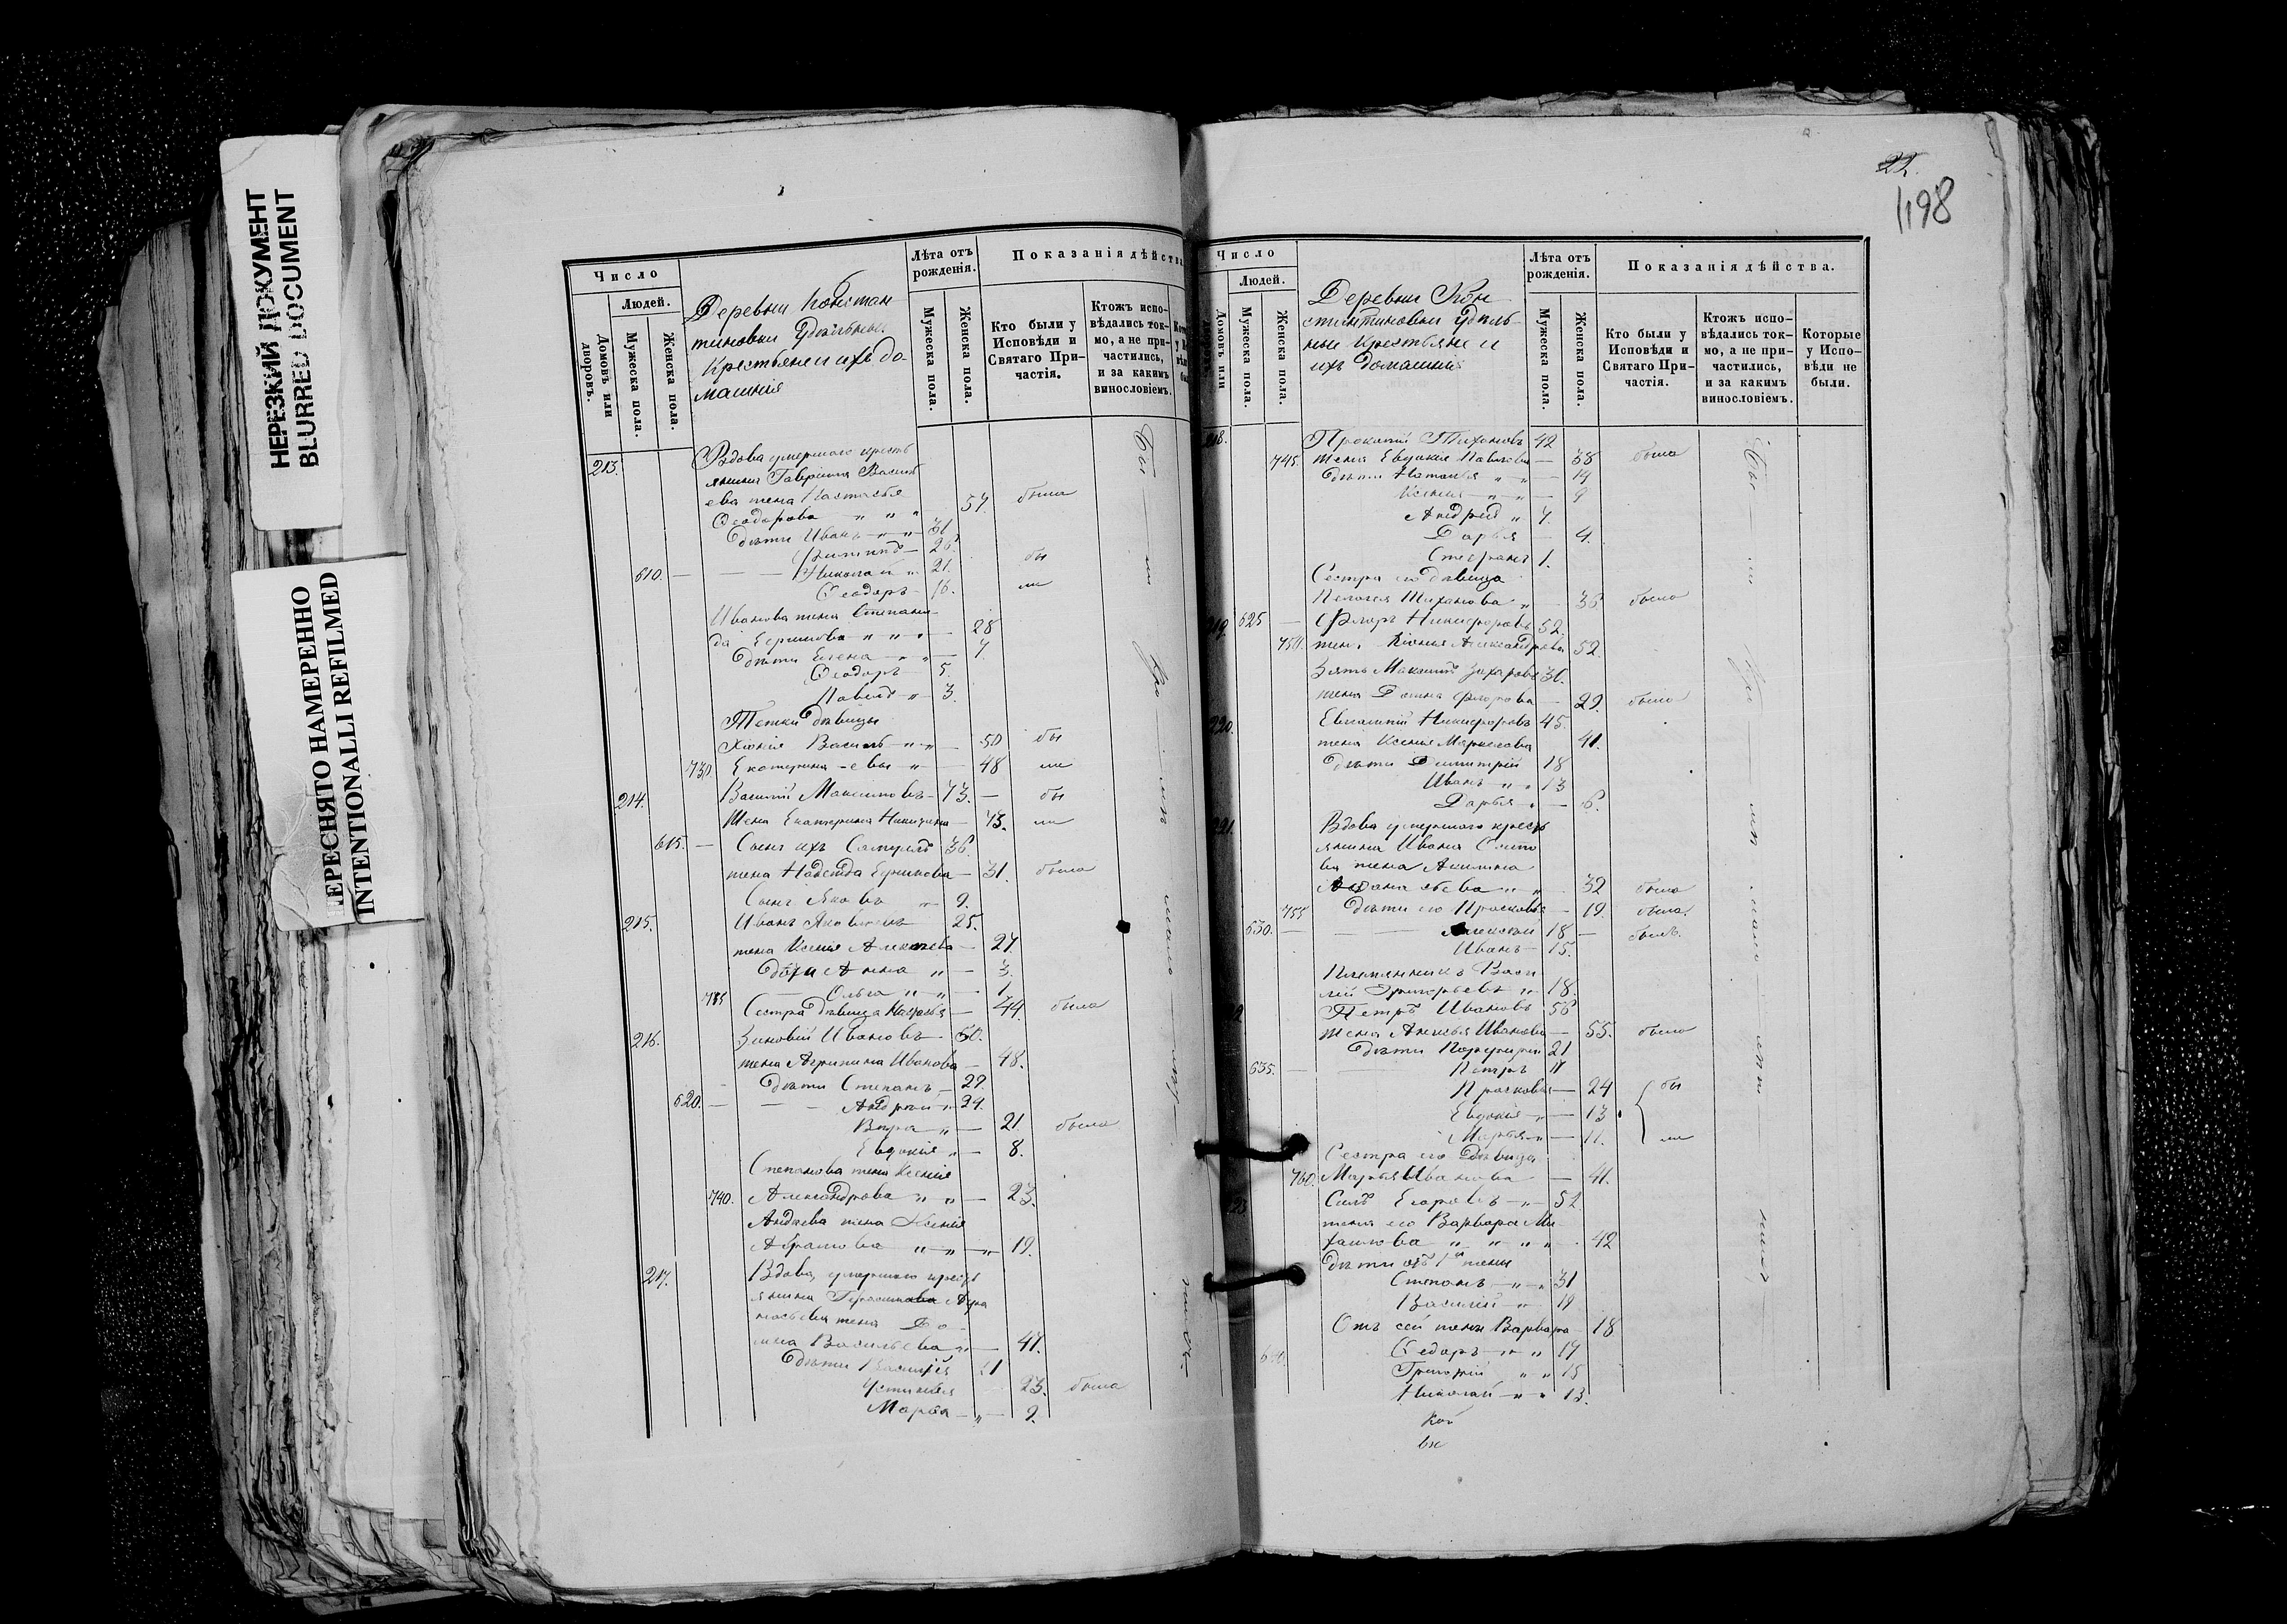 НЕРЕЗКИЙ ДОКУМЕНТ
BLURRED DOCUMENT
ЕРЕСНЯТО НАМЕРЕННО
INTENTIONALLI REFILMED
Число
Людей.
Домовъ или дворовъ.
Мужеска пола.
Женска пола.
Деревни Констан
тиновки Удѣльные
Крестьяне и ихъ до
машнія
Лѣта отъ рожденія.
Мужеска пола.
Женска пола.
Показанія дѣйства
Кто были у Исповѣди и Святаго При-частія.
Ктожъ испо-вѣдались ток-мо, а не при-частились, и за какимъ винословіемъ.
213. Вдова умершаго кресть
янина Гавріила Василь
ева жена Настасья
Ѳеодорова „ „ „ 57. была
Дѣти Иванъ „ „ 31
Филиппъ 26. бы
610. Николай „ 21.
Ѳеодоръ 16. ли
Иванова жена Степани
да Ефимова „ „ 28
Дѣти Елена „ „ 7.
Ѳеодоръ 5.
Павелъ „ 3.
Тетки дѣвицы
Хіонія Василь „ „ 50 бы
730. Екатерина евы „ 48 ли
214. Василій Максимовъ 73. бы
Жена Екатерина Никитина 73. ли
615. Сынъ ихъ Самуилъ 36.
жена Надежда Ефимова 31. была
Сынъ Яковъ „ 9.
215. Иванъ Яковлевъ 25.
жена Ксенія Алексѣева 27.
Дѣти Анна „ 3.
735 Ольга „ „ 1.
Сестра дѣвица Настасья 44. была
216. Зиновій Ивановъ 50.
жена Агрипина Иванова 48.
Дѣти Степанъ 29.
620. Андрей „ 24.
Вѣра „ 21. была
Евдокія „ 8.
Степанова жена Ксенія
740. Александрова „ „ 23.
Андреева жена Ксенія
Абрамова „ „ „ 19.
217. Вдова умершаго кресть
янина Герасима Афа
насьева жена До
мна Васильева 47.
Дѣти Василій
Устинья 23. была
Марья „ 9.
22.
1198
Число
Людей.
Домовъ или
Мужеска пола.
Женска пола.
Деревни Кон
стантиновки Удѣль
ные Крестьяне и
ихъ домашнія
Лѣта отъ рожденія.
Мужеска пола.
Женска пола.
Показанія дѣйства.
Кто были у Исповѣди и Святаго При-частія.
Ктожъ испо-вѣдались ток-мо, а не при-частились, и за какимъ винословіемъ.
Которые у Испо-вѣди не были.
218. Прокопій Тихоновъ 42
745. жена Евдокія Павлова 38 была
Дѣти Наталья „ „ 14
Ксенія „ „ 9
Андрей „ 7.
Дарья 4.
Стефанъ 1.
Сестра его дѣвица
Пелагея Тихонова „ 36 была
219. 625 Флоръ Никифоровъ 52.
750. жена Хіонія Александрова 52.
Зять Максимъ Захаровъ 30.
жена Домна Флорова 29. была
220. Евлампій Никифоровъ 45.
жена Ксенія Маркелова 41.
Дѣти Димитрій 18
Иванъ „ „ 13
Дарья „ 6.
221. Вдова умершаго кресть
янина Ивана Осипо
ва жена Акилина
Афанасьева „ „ 39 была
755 Дѣти его Прасковья 19. была.
630. Алексѣй 18 былъ.
Иванъ 15.
Племянникъ Васи
лій Григорьевъ „ 18.
Петръ Ивановъ 56
жена Анисья Иванова 55. была
Дѣти Порфирій 21
635. Петръ 17
Прасковья 24 бы
Евдокія „ 13
Марья „ 11. ли
Сестра его Дѣвица
760. Марья Иванова 41.
Силъ Егоровъ „ 52.
жена его Варвара Ми
хайлова „ „ „ „ 42
Дѣти отъ 1й жены
Степанъ „ „ 31
Василій „ 19
Отъ сей жены Варвара 18
Ѳедоръ „ „ 17
Григорій „ „ 15
Николай „ „ 13.